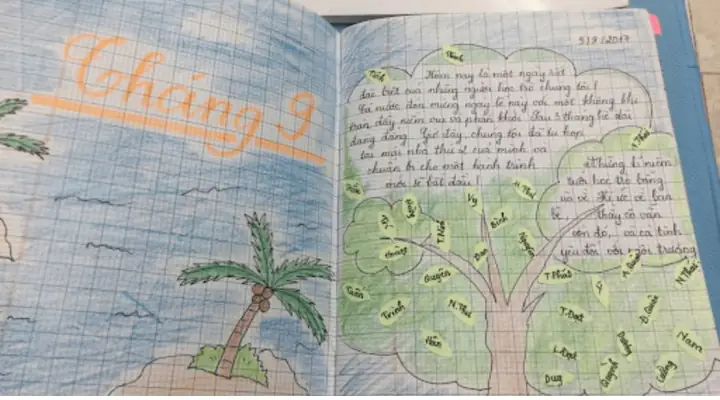 Tháng 9
5/9/2017
Hôm nay là một ngày rất
đặc biệt của những người học trò chúng tôi!
Cả nước đón mừng ngày lễ này với một không khí
tràn đầy niềm vui và phấn khởi. Sau 3 tháng hè dài
dang dẳng. Giờ đây, chúng tôi đã tụ họp
tại mái nhà thứ 2 của mình và
chuẩn bị cho một hành trình
mới sẽ bắt đầu!
Những kỉ niệm
tuổi học trò bỗng
ùa về. Kí ức về bạn
bè, thầy cô vẫn
còn đó, và cả tình
yêu đối với ngôi trường
Vy
Bình
H. Thư
Nguyên
Đan
T. Nhi
Hoàng
Quyên
Tuấn
Trinh
N. Thư
Hân
T. Phát
T. Đạt
L. Đạt
Duy
Lý
Quỳnh
Cường
Nam
N. Thái